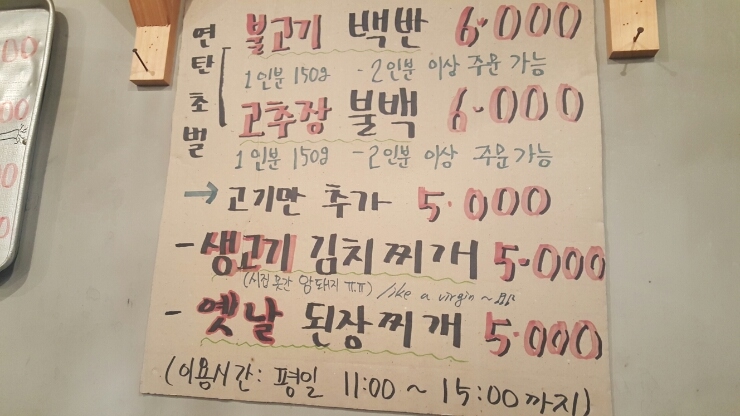 연탄초벌
불고기 백반 6.000
1인분 150g - 2인분 이상 주문 가능
고추장 불백 6.000
1인분 150g - 2인분 이상 주문가능
→ 고기만 추가 5.000
- 생고기 김치찌개 5.000
(시집 못간 암돼지 ㅠㅠ) like a virgin ~
- 옛날 된장찌개 5.000
(이용시간: 평일 11:00 ~ 15:00까지)